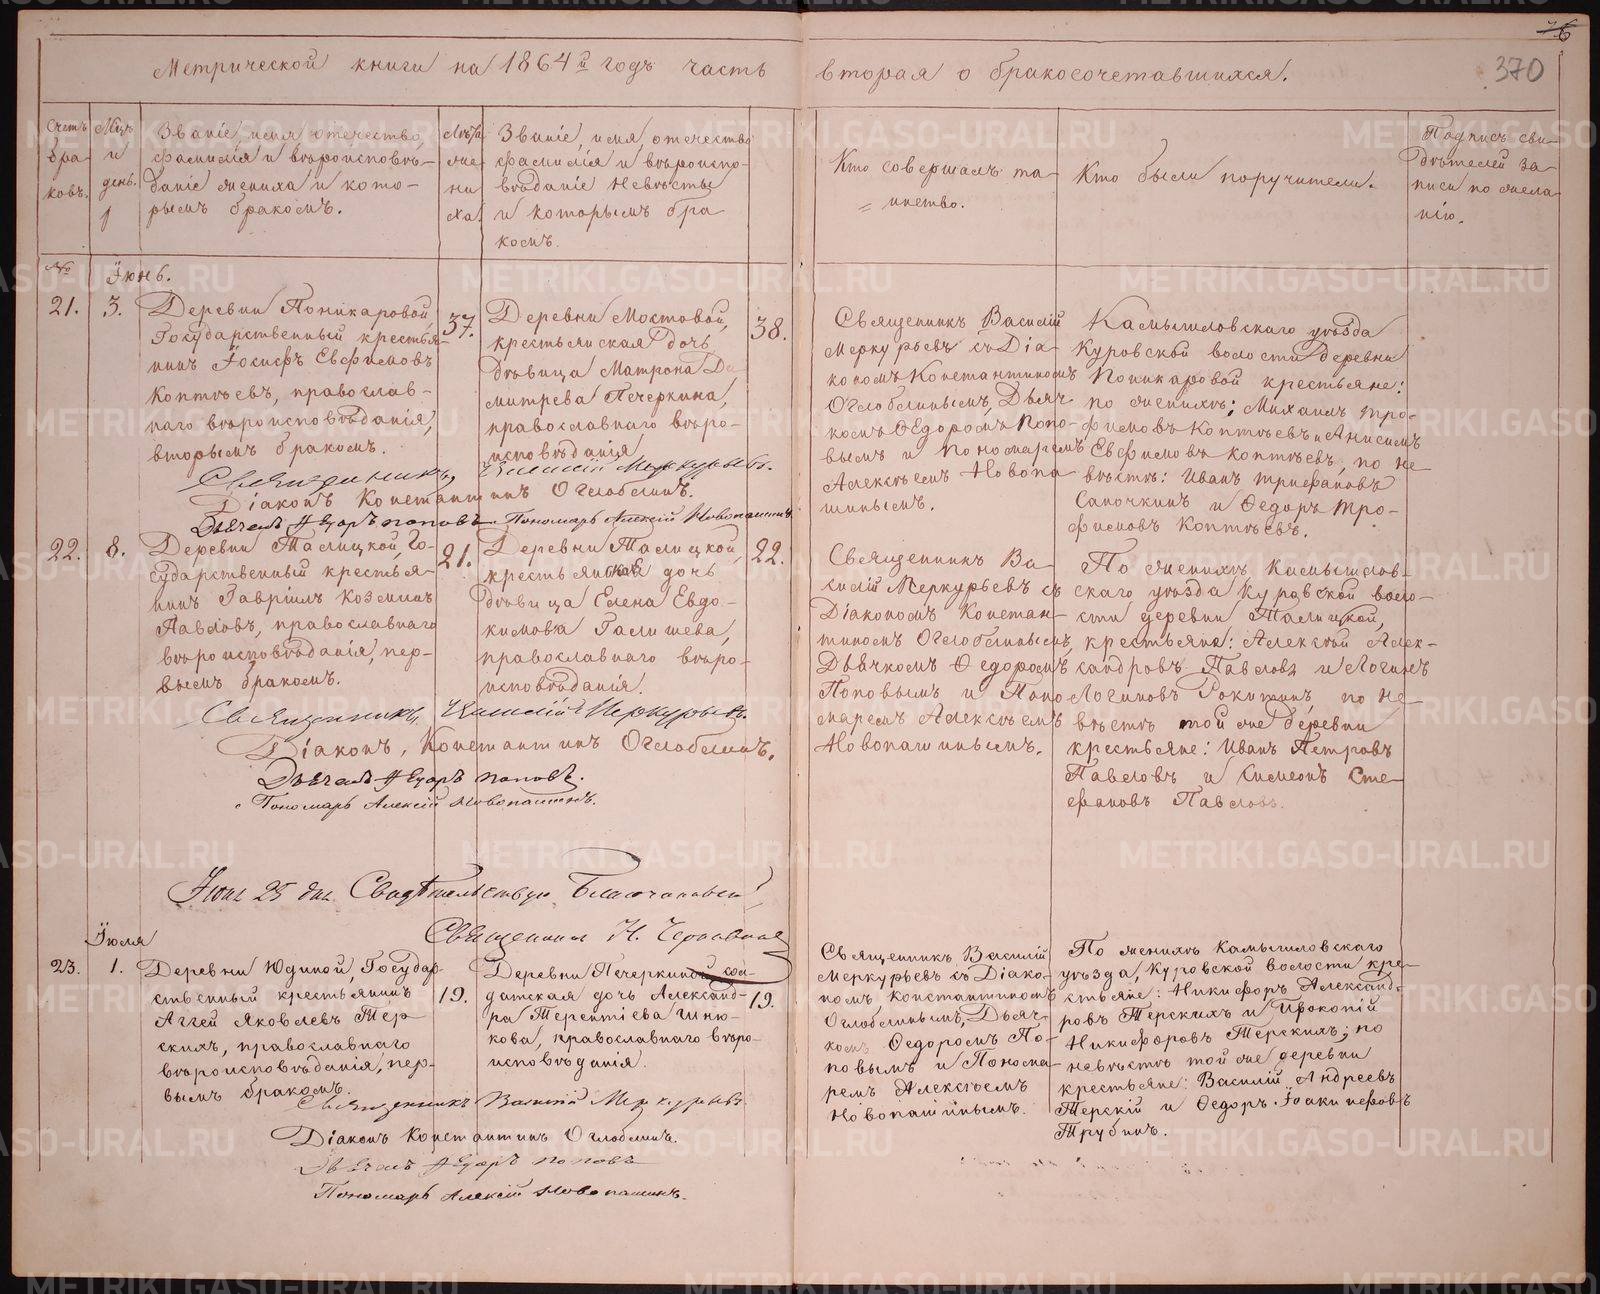 76
370
Метрической книги на 1864й годъ часть вторая о бракосочетавшихся.
Счетъ
бра-
ковъ.
Мцъ
и
день.
Званіе, имя, отечество,
фамилія и вѣроисповѣ-
даніе жениха и кото-
рымъ бракомъ.
Лѣта
же-
ни
ха.
Званіе, имя, отечество
фамилія и вѣроиспо-
вѣданіе невѣсты
и которымъ бра
комъ.
Кто совершалъ та-
инство.
Кто были поручители.
Подпись сви-
дѣтелей за-
писи по жела-
нію.
№
Іюнь.
21.
3.
Деревни Поникаровой
Государственный крестья-
нинъ Іосифъ Евфимовъ
Коптѣевъ, православ-
наго вѣроисповѣданія,
вторымъ бракомъ.
37.
Деревни Мостовой,
крестьянская дочь
дѣвица Матрона Ди
митрева Печеркина,
православнаго вѣро-
исповѣданія
38.
Священникъ Василій
Меркурьевъ съ Діа-
кономъ Константиномъ
Оглоблинымъ, Дьяч-
комъ Ѳедоромъ Попо-
вымъ и Пономаремъ
Алексѣемъ Новопа
шинымъ.
Камышловскаго уѣзда
Куровской волости деревни
Поникаровой крестьяне:
по женихѣ; Михаилъ Тро-
фимовъ Коптѣевъ и Анисимъ
Евфимовъ Коптѣевъ, по не
вѣстѣ: Иванъ Трифановъ
Сапочкинъ и Ѳедоръ Тро-
фимовъ Коптѣевъ.
Священникъ, Василій Меркурьевъ.
Діаконъ Константинъ Оглоблинъ.
Дьячекъ Ѳедоръ Поповъ. Пономарь Алексій Новопашинъ
22.
8.
Деревни Талицкой, Го-
сударственный крестья-
нинъ Гавріилъ Козминъ
Павловъ, православнаго
вѣроисповѣданія, пер-
вымъ бракомъ.
21.
Деревни Талицкой,
крестьянская дочь
дѣвица Елена Евдо-
кимова Галишева,
православнаго вѣро-
исповѣданія.
22.
Священникъ Ва-
силій Меркурьевъ съ
Діакономъ Констан-
тиномъ Оглоблинымъ,
Дьячкомъ Ѳедоромъ
Поповымъ и Поно
маремъ Алексѣемъ
Новопашинымъ.
По женихѣ Камышлов-
скаго уѣзда Куровской воло-
сти деревни Талицкой,
крестьяне: Алексѣй Алек-
сандровъ Павловъ и Логинъ
Логиновъ Рокитинъ, по не-
вѣстѣ той же деревни
крестьяне: Иванъ Петровъ
Павловъ и Симеонъ Сте-
фановъ Павловъ.
Священникъ, Василій Меркурьевъ.
Діаконъ, Константинъ Оглоблинъ.
Дьячекъ Ѳедоръ Поповъ.
Пономарь Алексій Новопашинъ.
Іюня 25 дня Свидѣтельствую Благочинный,
Священникъ Н.
Іюля
23.
1.
Деревни Юдиной, Государ-
ственный крестьянинъ
Аггей Яковлевъ Тер-
скихъ, православнаго
вѣроисповѣданія, пер-
вымъ бракомъ.
19.
Деревни Печеркиной, сол-
датская дочь Александ-
ра Терентіева Шню-
кова, православнаго вѣро-
исповѣданія.
19.
Священникъ Василій
Меркурьевъ съ Діако-
номъ Константиномъ
Оглоблинымъ, Дьяч-
комъ Ѳедоромъ По-
повымъ и Понома-
ремъ Алексѣемъ
Новопашинымъ.
По женихѣ Камышловскаго
уѣзда, Куровской волости кре-
стьяне: Никифоръ Александ-
ровъ Терскихъ и Прокопій
Никифоровъ Терскихъ; по
невѣстѣ той же деревни
крестьяне: Василій Андреевъ
Терскій и Ѳедоръ Іоакинфовъ
Трубинъ.
Священникъ Василій Меркурьевъ.
Діаконъ Константинъ Оглоблинъ.
Дьячекъ Ѳедоръ Поповъ
Пономарь Алексій Новопашинъ.